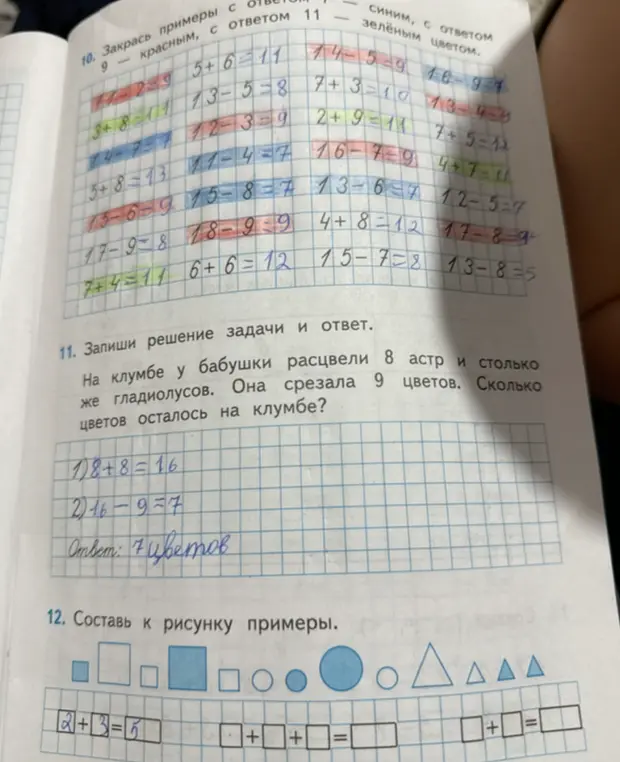 10. Закрась примеры с — синим, с ответом
9 — красным, с ответом 11 — зелёным цветом.
11-2=9 5+6=11 14-5=9 16-9=7
3+8=11 13-5=8 7+3=10 13-4=9
14-7=7 12-3=9 2+9=11 7+5=12
5+8=13 11-4=7 16-7=9 4+7=11
15-6=9 15-8=7 13-6=7 12-5=7
17-9=8 18-9=9 4+8=12 17-8=9
7+4=11 6+6=12 15-7=8 13-8=5
11. Запиши решение задачи и ответ.
На клумбе у бабушки расцвели 8 астр и столько
же гладиолусов. Она срезала 9 цветов. Сколько
цветов осталось на клумбе?
1) 8+8=16
2) 16-9=7
Ответ: 7 цветов
12. Составь к рисунку примеры.
2+3=5 + + = + =